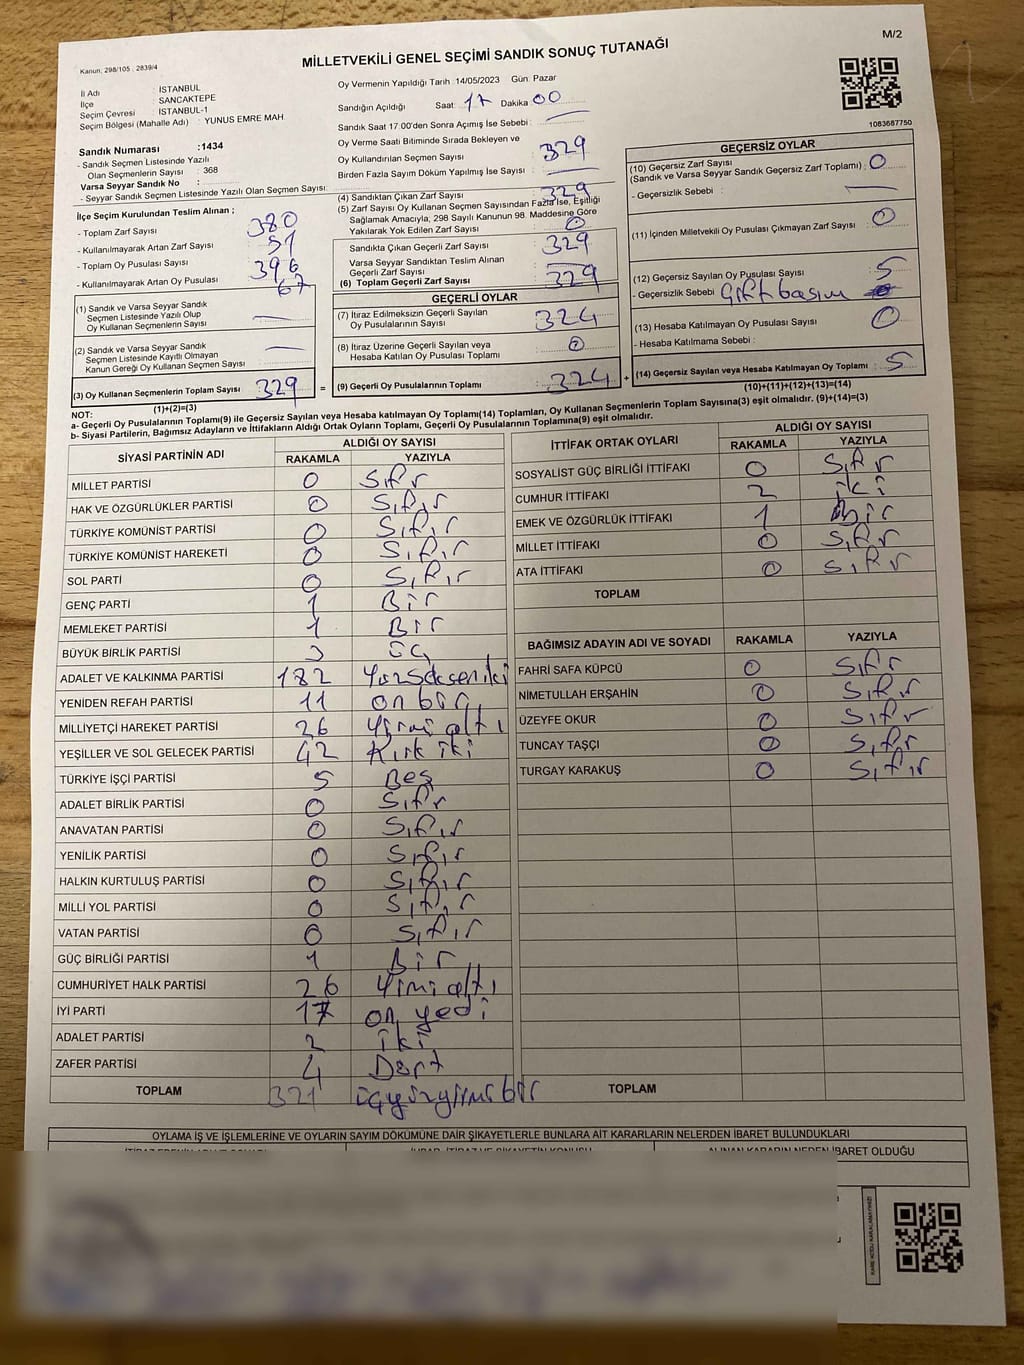 M/2
MİLLETVEKİLİ GENEL SEÇİMİ SANDIK SONUÇ TUTANAĞI
Kanun, 298/105 . 2839/4
İl Adı : İSTANBUL
İlçe : SANCAKTEPE
Seçim Çevresi : İSTANBUL-1
Seçim Bölgesi (Mahalle Adı) : YUNUS EMRE MAH
Sandık Numarası :1434
- Sandık Seçmen Listesinde Yazılı
Olan Seçmenlerin Sayısı : 368
Varsa Seyyar Sandık No :
- Seyyar Sandık Seçmen Listesinde Yazılı Olan Seçmen Sayısı:
İlçe Seçim Kurulundan Teslim Alınan ;
- Toplam Zarf Sayısı : 380
- Kullanılmayarak Artan Zarf Sayısı : 51
- Toplam Oy Pusulası Sayısı : 396
- Kullanılmayarak Artan Oy Pusulası : 67
(1) Sandık ve Varsa Seyyar Sandık
Seçmen Listesinde Yazılı Olup
Oy Kullanan Seçmenlerin Sayısı :
(2) Sandık ve Varsa Seyyar Sandık
Seçmen Listesinde Kayıtlı Olmayan
Kanun Gereği Oy Kullanan Seçmen Sayısı :
(3) Oy Kullanan Seçmenlerin Toplam Sayısı : 329
(1)+(2)=(3)
Oy Vermenin Yapıldığı Tarih 14/05/2023 Gün: Pazar
Sandığın Açıldığı Saat: 17 Dakika 00
Sandık Saat 17:00'den Sonra Açımış İse Sebebi :
Oy Verme Saati Bitiminde Sırada Bekleyen ve
Oy Kullandırılan Seçmen Sayısı : 329
Birden Fazla Sayım Döküm Yapılmış İse Sayısı :
(4) Sandıktan Çıkan Zarf Sayısı : 329
(5) Zarf Sayısı Oy Kullanan Seçmen Sayısından Fazla İse, Eşitliği
Sağlamak Amacıyla; 298 Sayılı Kanunun 98. Maddesine Göre
Yakılarak Yok Edilen Zarf Sayısı : 0
Sandıkta Çıkan Geçerli Zarf Sayısı : 329
Varsa Seyyar Sandıktan Teslim Alınan
Geçerli Zarf Sayısı :
(6) Toplam Geçerli Zarf Sayısı : 329
GEÇERLİ OYLAR
(7) İtiraz Edilmeksizin Geçerli Sayılan
Oy Pusulalarının Sayısı : 324
(8) İtiraz Üzerine Geçerli Sayılan veya
Hesaba Katılan Oy Pusulası Toplamı : 0
= (9) Geçerli Oy Pusulalarının Toplamı : 324 +
1083687750
GEÇERSİZ OYLAR
(10) Geçersiz Zarf Sayısı
(Sandık ve Varsa Seyyar Sandık Geçersiz Zarf Toplamı) : 0
- Geçersizlik Sebebi :
(11) İçinden Milletvekili Oy Pusulası Çıkmayan Zarf Sayısı : 0
(12) Geçersiz Sayılan Oy Pusulası Sayısı : 5
- Geçersizlik Sebebi Çift basım
(13) Hesaba Katılmayan Oy Pusulası Sayısı : 0
- Hesaba Katılmama Sebebi :
(14) Geçersiz Sayılan veya Hesaba Katılmayan Oy Toplamı : 5
(10)+(11)+(12)+(13)=(14)
NOT:
a- Geçerli Oy Pusulalarının Toplamı(9) ile Geçersiz Sayılan veya Hesaba katılmayan Oy Toplamı(14) Toplamları, Oy Kullanan Seçmenlerin Toplam Sayısına(3) eşit olmalıdır. (9)+(14)=(3)
b- Siyasi Partilerin, Bağımsız Adayların ve İttifakların Aldığı Ortak Oyların Toplamı, Geçerli Oy Pusulalarının Toplamına(9) eşit olmalıdır.
SİYASİ PARTİNİN ADI ALDIĞI OY SAYISI
RAKAMLA YAZIYLA
MİLLET PARTİSİ 0 Sıfır
HAK VE ÖZGÜRLÜKLER PARTİSİ 0 Sıfır
TÜRKİYE KOMÜNİST PARTİSİ 0 Sıfır
TÜRKİYE KOMÜNİST HAREKETİ 0 Sıfır
SOL PARTİ 0 Sıfır
GENÇ PARTİ 1 Bir
MEMLEKET PARTİSİ 1 Bir
BÜYÜK BİRLİK PARTİSİ 3 üç
ADALET VE KALKINMA PARTİSİ 182 Yüzseksen iki
YENİDEN REFAH PARTİSİ 11 on bir
MİLLİYETÇİ HAREKET PARTİSİ 26 Yirmi altı
YEŞİLLER VE SOL GELECEK PARTİSİ 42 Kırk iki
TÜRKİYE İŞÇİ PARTİSİ 5 Beş
ADALET BİRLİK PARTİSİ 0 Sıfır
ANAVATAN PARTİSİ 0 Sıfır
YENİLİK PARTİSİ 0 Sıfır
HALKIN KURTULUŞ PARTİSİ 0 Sıfır
MİLLİ YOL PARTİSİ 0 Sıfır
VATAN PARTİSİ 0 Sıfır
GÜÇ BİRLİĞİ PARTİSİ 1 Bir
CUMHURİYET HALK PARTİSİ 26 Yirmi altı
İYİ PARTİ 17 on yedi
ADALET PARTİSİ 2 iki
ZAFER PARTİSİ 4 Dört
TOPLAM 321 üçyüzyirmi bir
İTTİFAK ORTAK OYLARI ALDIĞI OY SAYISI
RAKAMLA YAZIYLA
SOSYALİST GÜÇ BİRLİĞİ İTTİFAKI 0 Sıfır
CUMHUR İTTİFAKI 2 iki
EMEK VE ÖZGÜRLÜK İTTİFAKI 1 Bir
MİLLET İTTİFAKI 0 Sıfır
ATA İTTİFAKI 0 Sıfır
TOPLAM
BAĞIMSIZ ADAYIN ADI VE SOYADI RAKAMLA YAZIYLA
FAHRİ SAFA KÜPCÜ 0 Sıfır
NİMETULLAH ERŞAHİN 0 Sıfır
ÜZEYFE OKUR 0 Sıfır
TUNCAY TAŞÇI 0 Sıfır
TURGAY KARAKUŞ 0 Sıfır
TOPLAM
OYLAMA İŞ VE İŞLEMLERİNE VE OYLARIN SAYIM DÖKÜMÜNE DAİR ŞİKAYETLERLE BUNLARA AİT KARARLARIN NELERDEN İBARET BULUNDUKLARI
ALINAN KARARIN NEDEN İBARET OLDUĞU